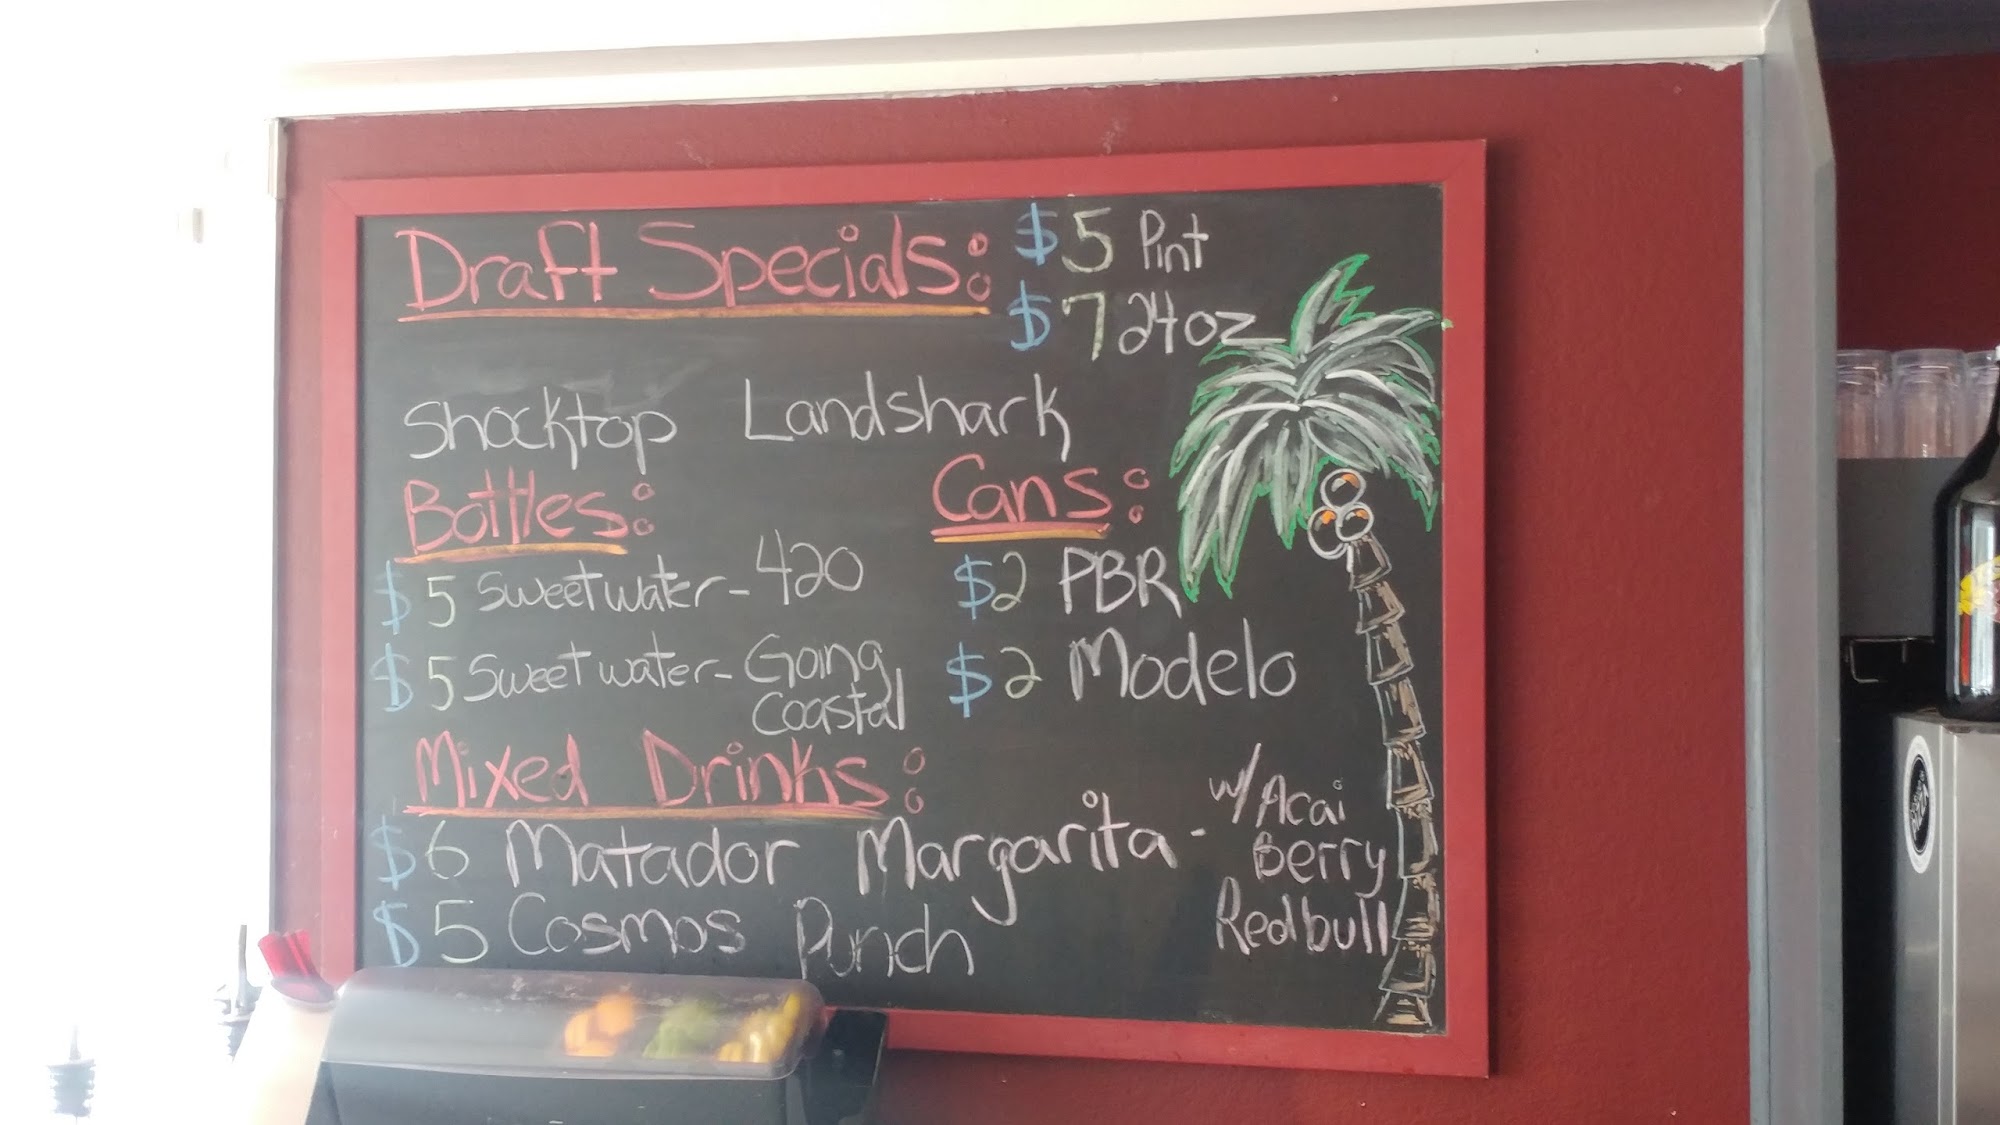 Draft Specials: $5 Pint
$7 24oz
Shocktop Landshark
Bottles: Cans:
$5 Sweetwater - 420 $2 PBR
$5 Sweetwater - Going Coastal $2 Modelo
Mixed Drinks:
$6 Matador Margarita - w/ Acai
Berry
Redbull
$5 Cosmos Punch